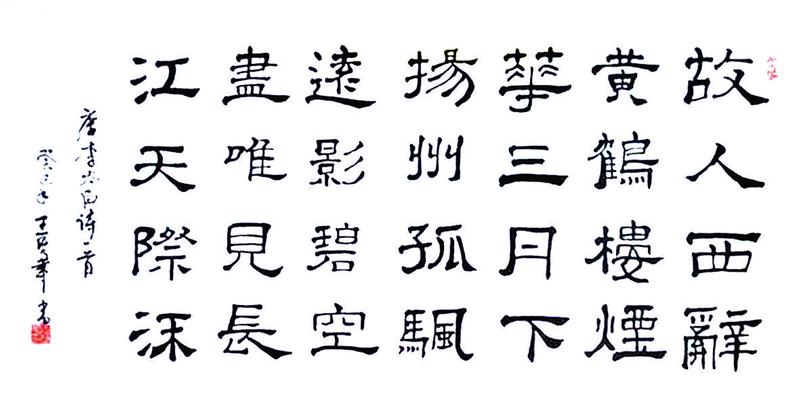 故人西辭
黄鶴樓煙
華三月下
揚州孤颿
遠影碧空
盡唯見長
江天際流
唐李太白诗一首
癸巳年王書